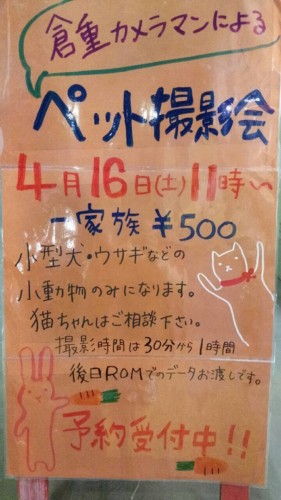 倉重カメラマンによる
ペット撮影会
4月16日(土)11時〜
一家族 ¥500
小型犬・ウサギなどの
小動物のみになります。
猫ちゃんはご相談下さい。
撮影時間は30分から1時間
後日ROMでのデータお渡しです。
予約受付中!!